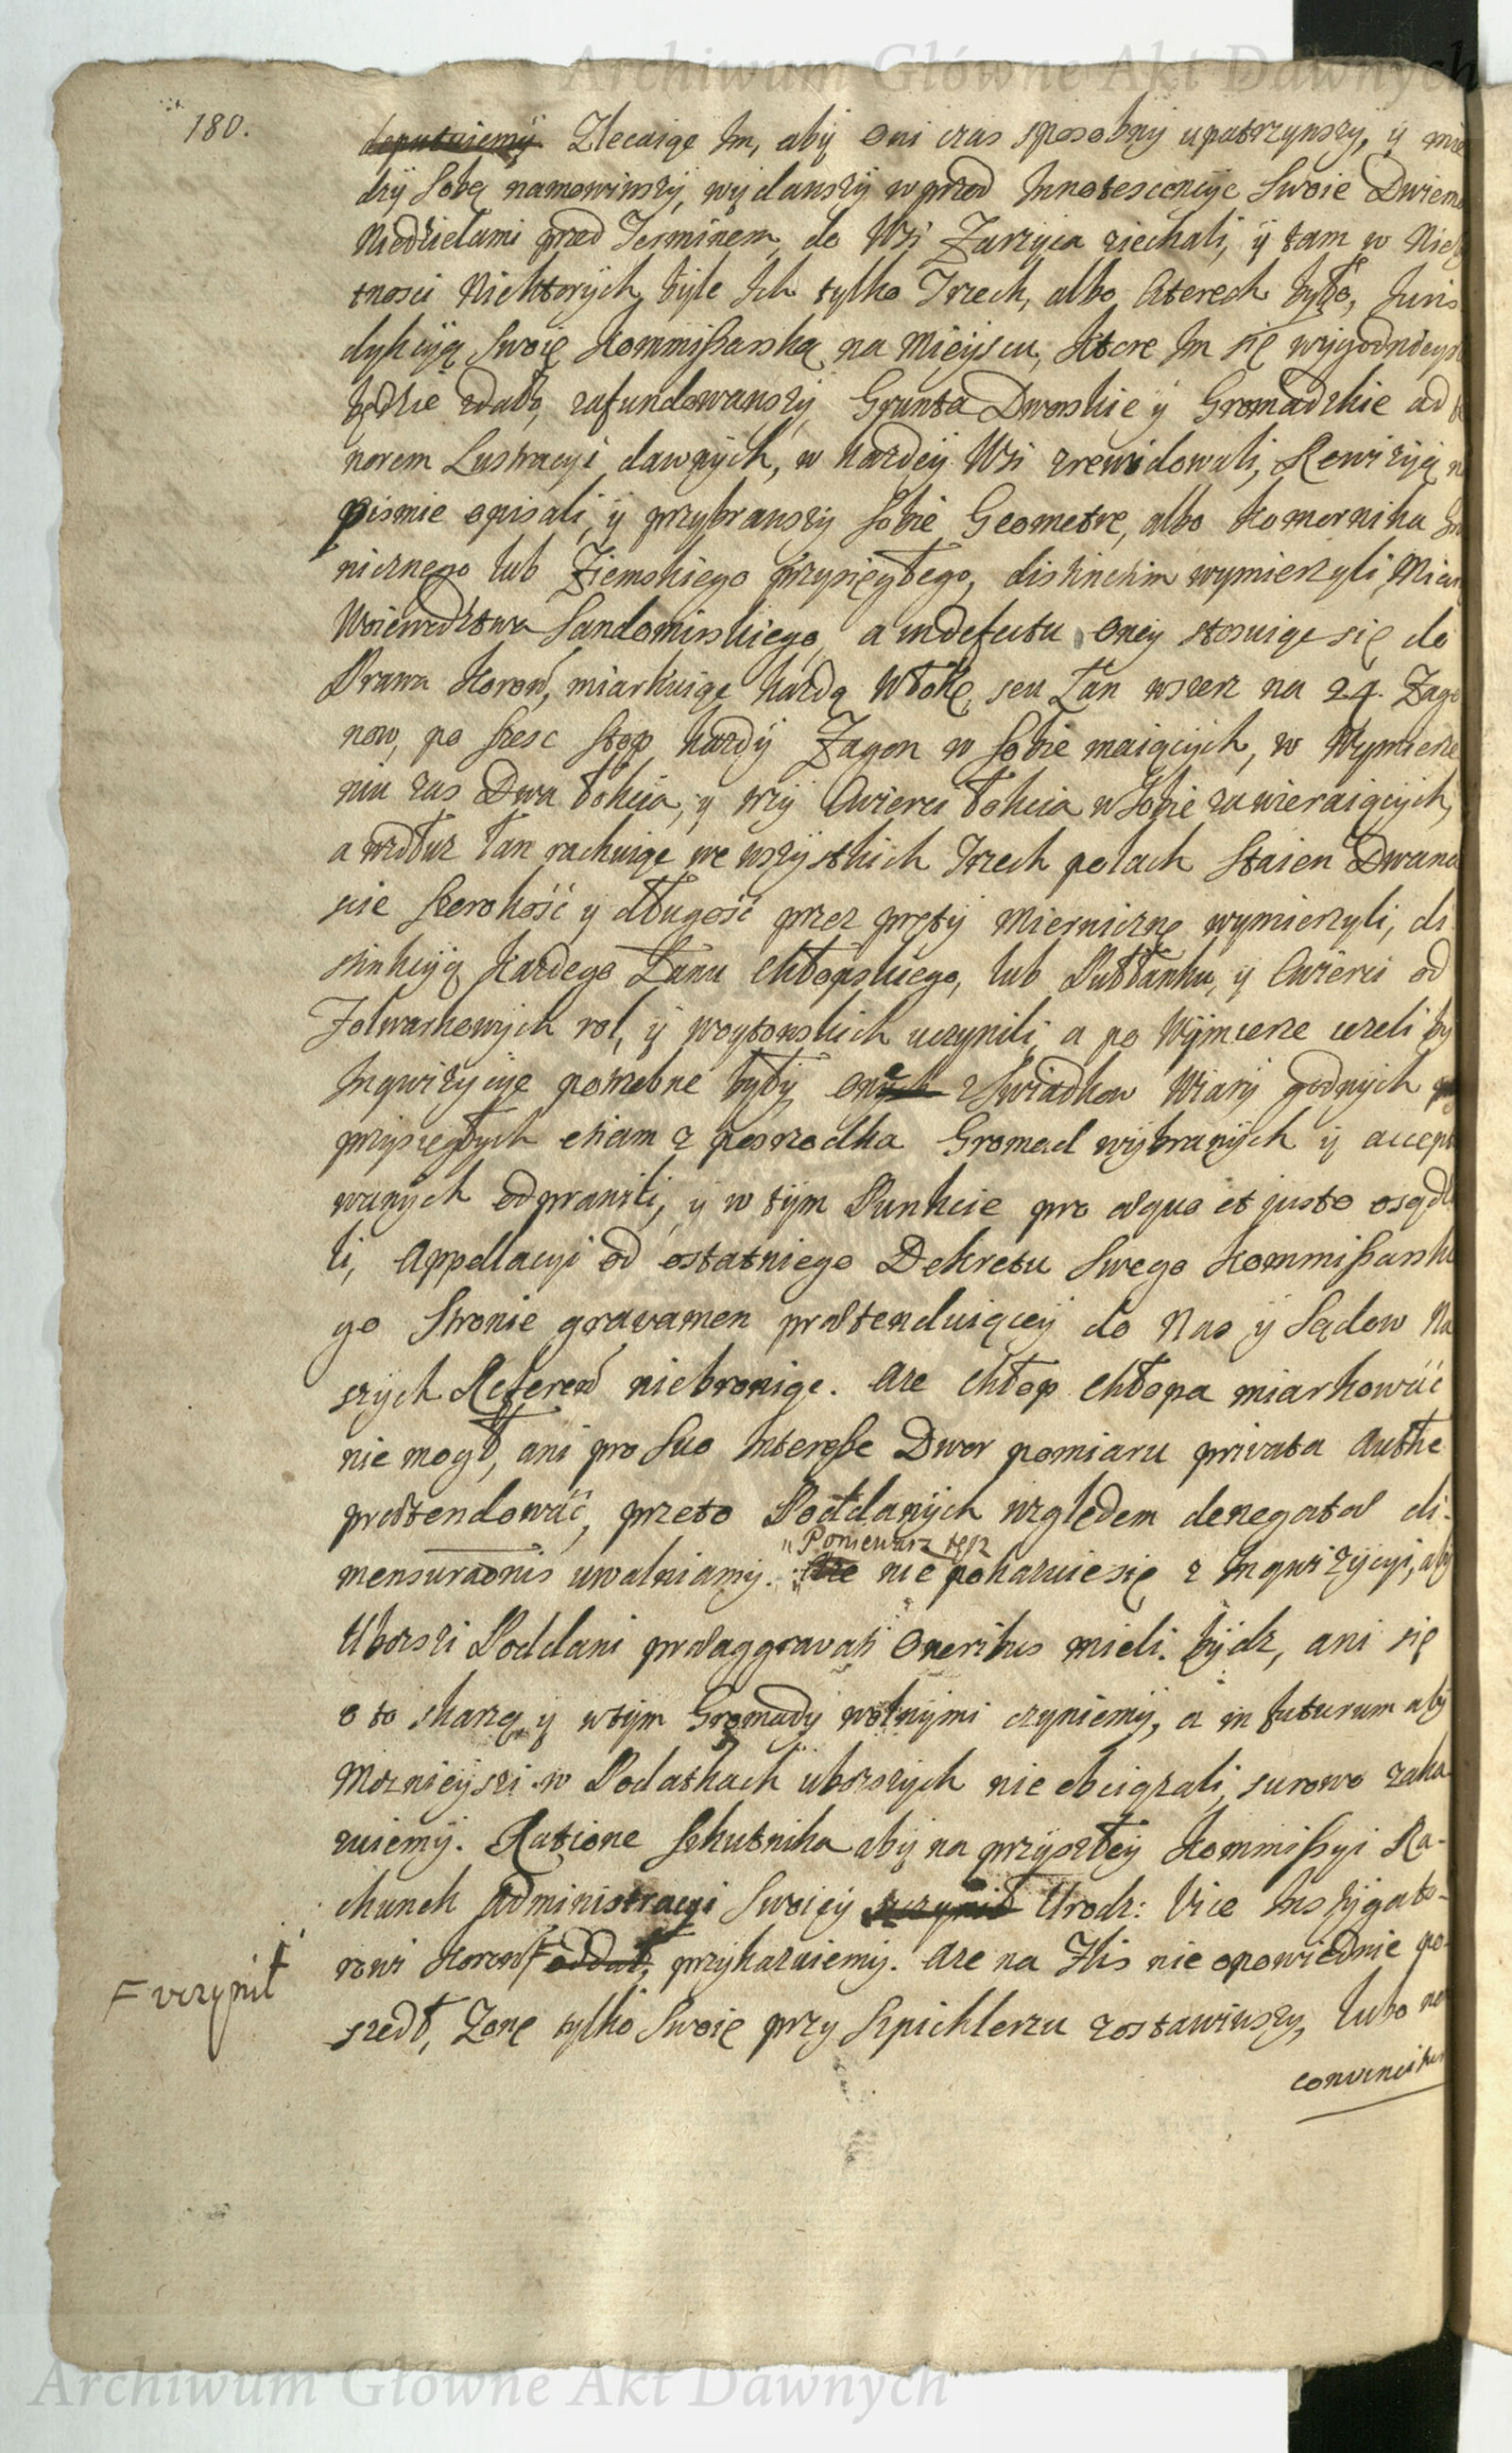 Archiwum Główne Akt Dawnych
180.
deputuiemÿ Zlecaiąc Im, abÿ Oni czas sposobnÿ upatrzywszy, ÿ mię
dzÿ Sobą namowiwszÿ, wÿdawszÿ wprzod Innotescencÿe Swoie Dwiema
Niedzielami przed Terminem, do Wsi Zarzÿca ziechali, ÿ tam w Nieby
tnosci Niektorÿch, bÿle Ich tylko Trzech, albo Czterech bÿło, Juris
dykcÿą Swoię Kommißarską na Mieÿscu, ktore Im się wÿgodnieysze
będzie zdało, zafundowawszÿ Grunta Dworskie ÿ Gromadzkie ad te
norem Lustracyi dawnÿch, w kazdeÿ Wsi zrewidowali, Rewizÿą na
pismie opisali, ÿ przybrawszÿ Sobie Geometrę, albo Komornika Gra
nicznego lub Ziemskiego przysięgłego, distinctim wymierzyli, Miarą
Woiewodztwa Sandomirskiego, a in defectu oneÿ stosuiąc się do
Prawa Koron̄, miarkuiąc kazdą Włokę, seu Łan wszerz na 24. Zago
now, po szesc stop kazdÿ Zagon w Sobie maiącÿch, w Wymierze
niu zas Dwa łokcia, ÿ trzÿ Cwierci łokcia w Sobie zawieraiącÿch,
a wzdłuz łan rachuiąc we wszÿstkich Trzech polach Staien Dwana
scie szerokość y długość przez prętÿ Miernicze wymierzyli, di
stinkcÿą kazdego Łanu Chłopskiego, lub Pułłanku, ÿ Cwierci od
Folwarkowÿch rol, ÿ woytowskich uczynili, a po Wÿmierze iezeli by
Inqwizycÿe potrzebne bÿłÿ onych z Swiadkow Wiarÿ godnÿch
przysięgłÿch etiam z posrzodka Gromad wÿbranÿch ÿ accepto
wanÿch odprawili, ÿ w tÿm Punkcie pro æquo et justo osądzi
li, Appellacyi od ostatniego Dekretu Swego Kommißarskie
go Stronie gravamen prætenduiąceÿ do Nas ÿ Sądow Na
szÿch Referen̄ niebroniąc. Aze Chłop Chłopa miarkowáć
nie mogł, ani pro Suo Interesse Dwor pomiaru privata Autthe
prætendowáć, przeto Poddanÿch względem denegatæ di-
"Poniewasz tesz
mensurationis uwalniamÿ. Aze nie pokazuiesię z Inqwizÿcyi, aby
Ubozsi Poddani præaggravati Oneribus mieli bÿdz, ani się
o to skarzą, ÿ wtÿm Gromadÿ wolnÿmi czyniemÿ, a in futurum abÿ
Moznieÿszi w Podatkach ubozszÿch nie obciązali, surowo zaka
zuiemÿ. Ratione Szkutnika abÿ na przÿszłeÿ Kommißyi Ra-
chunek Administracyi Swoieÿ uczynił Urodz: Vice Instÿgato-
rowi Koron̄ F oddał, przÿkazuiemÿ. Aze na Flis nie opowiednie po-
F uczynił
szedł, Zonę tylko Swoię przy Szpichlerzu zostawiwszy, lubo non
convincitur
Archiwum Główne Akt Dawnych